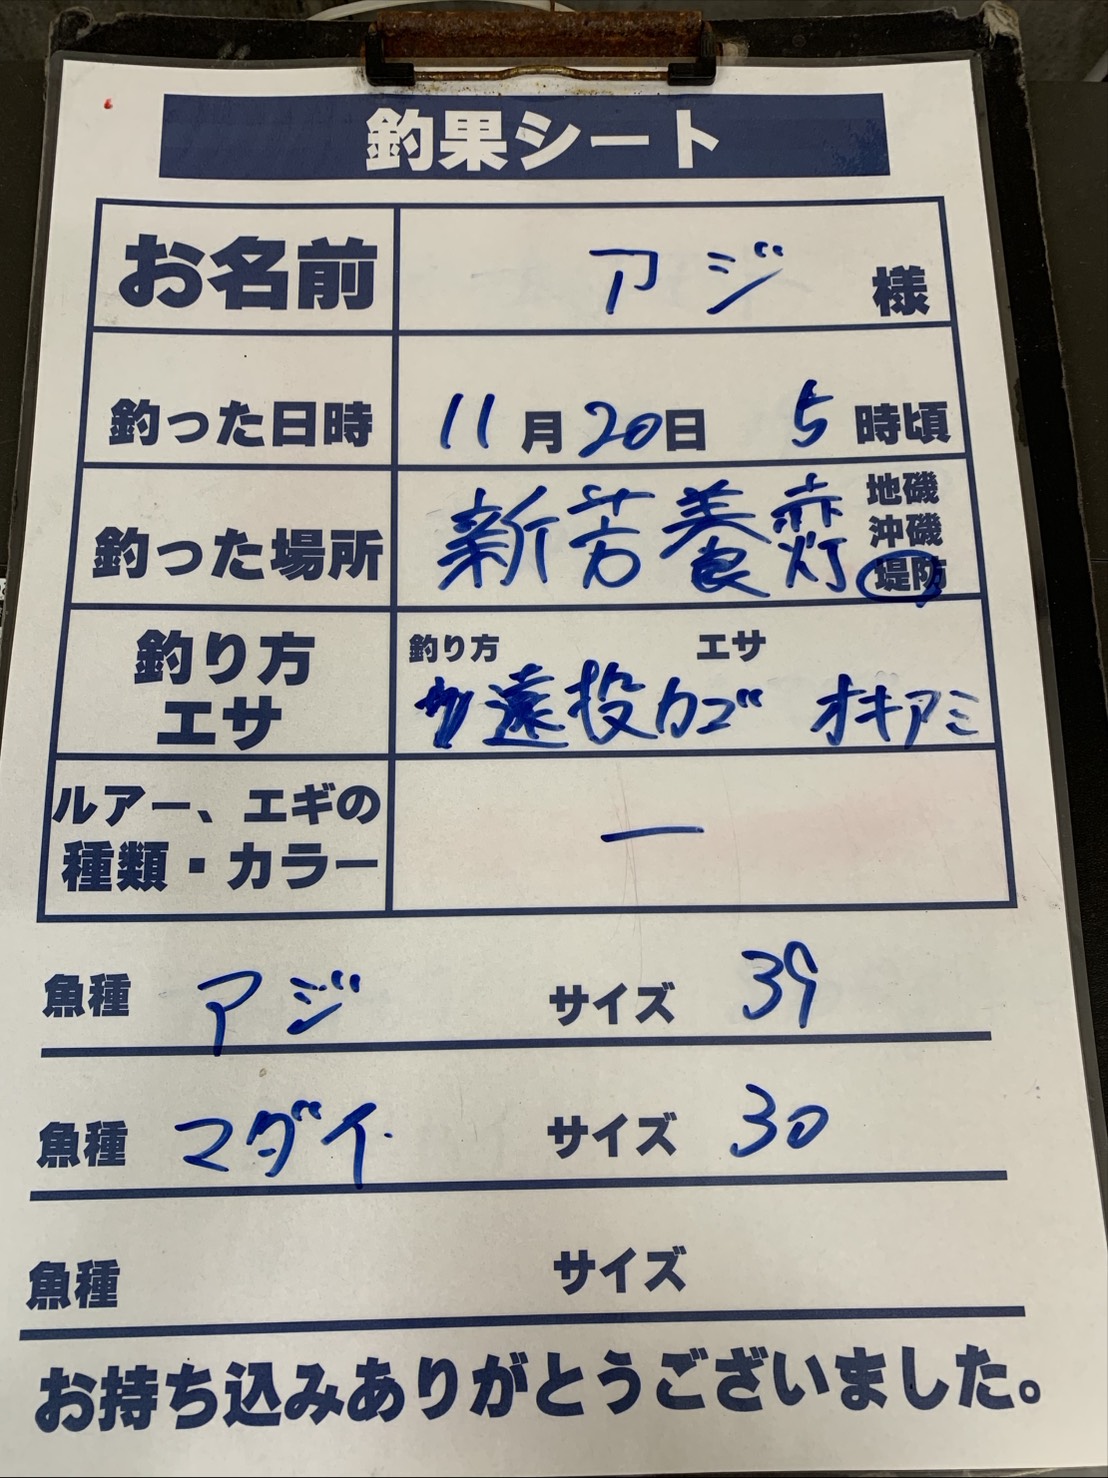 釣果シート
お名前 アジ 様
釣った日時 11月20日 5時頃
釣った場所 新芳養赤灯 地磯
沖磯
堤防
釣り方 エサ
釣り方
エサ
遠投カゴ オキアミ
ルアー、エギの
種類・カラー ー
魚種 アジ サイズ 39
魚種 マダイ サイズ 30
魚種 サイズ
お持ち込みありがとうございました。